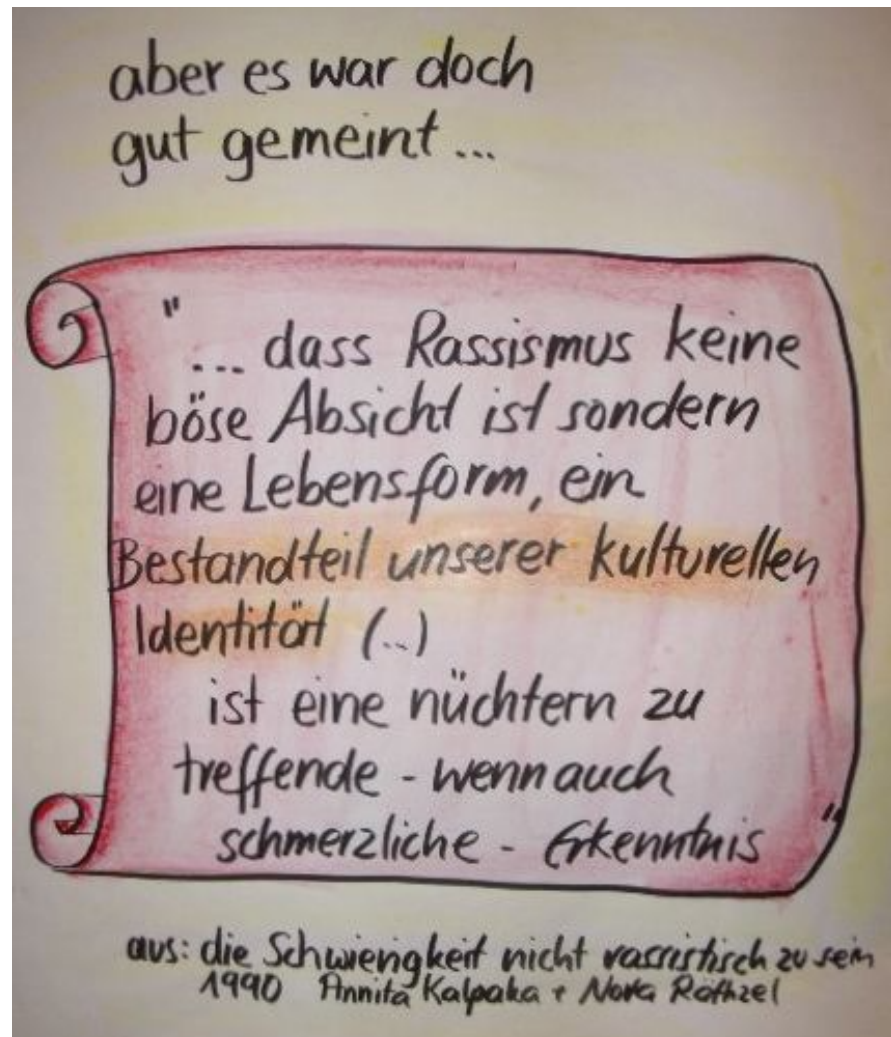 aber es war doch
gut gemeint...
"... dass Rassismus keine
böse Absicht ist sondern
eine Lebensform, ein
Bestandteil unserer kulturellen
Identität (..)
ist eine nüchtern zu
treffende - wenn auch
schmerzliche - Erkenntnis "
aus: die Schwierigkeit nicht rassistisch zu sein
1990 Annita Kalpaka + Nora Räthzel